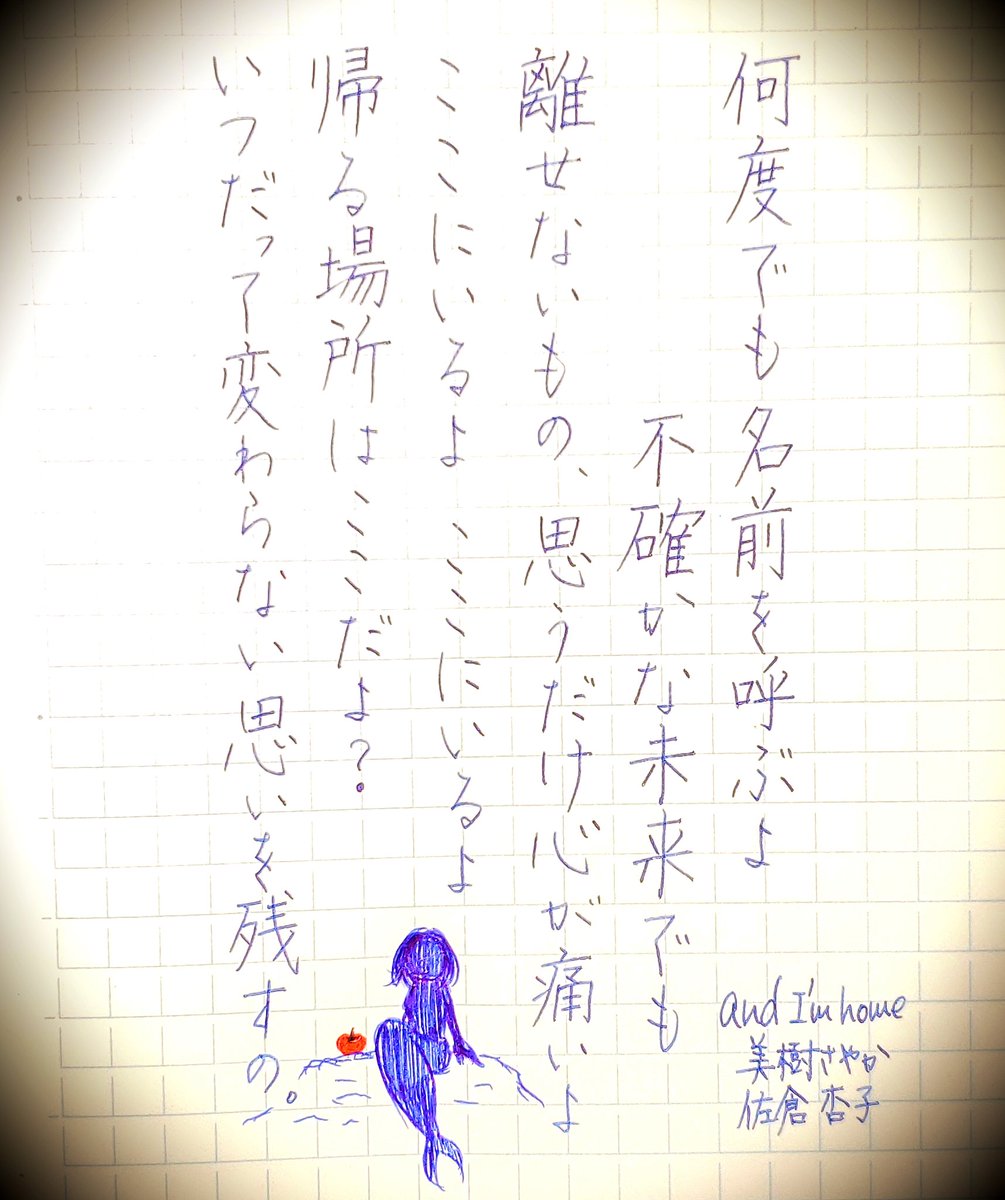 何度でも名前を呼ぶよ
不確かな未来でも
離せないもの、思うだけ心が痛いよ
ここにいるよ ここにいるよ
帰る場所はここだよ？
いつだって変わらない思いを残すの。
and I'm home
美樹さやか
佐倉杏子